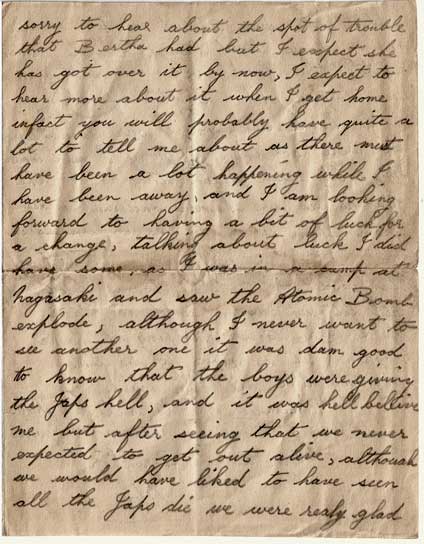 sorry to hear about the spot of trouble
that Bertha had but I expect she
has got over it by now, I expect to
hear more about it when I get home
infact you will probably have quite a
lot to tell me about as there must
have been a lot happening while I
have been away, and I am looking
forward to having a bit of luck for
a change, talking about luck I did
have some, as I was in a camp at
Nagasaki and saw the Atomic Bomb
explode, although I never want to
see another one it was dam good
to know that the boys were giving
the Japs hell, and it was hell believe
me but after seeing that we never
expected to get out alive, although
we would have liked to have seen
all the Japs die we were realy glad